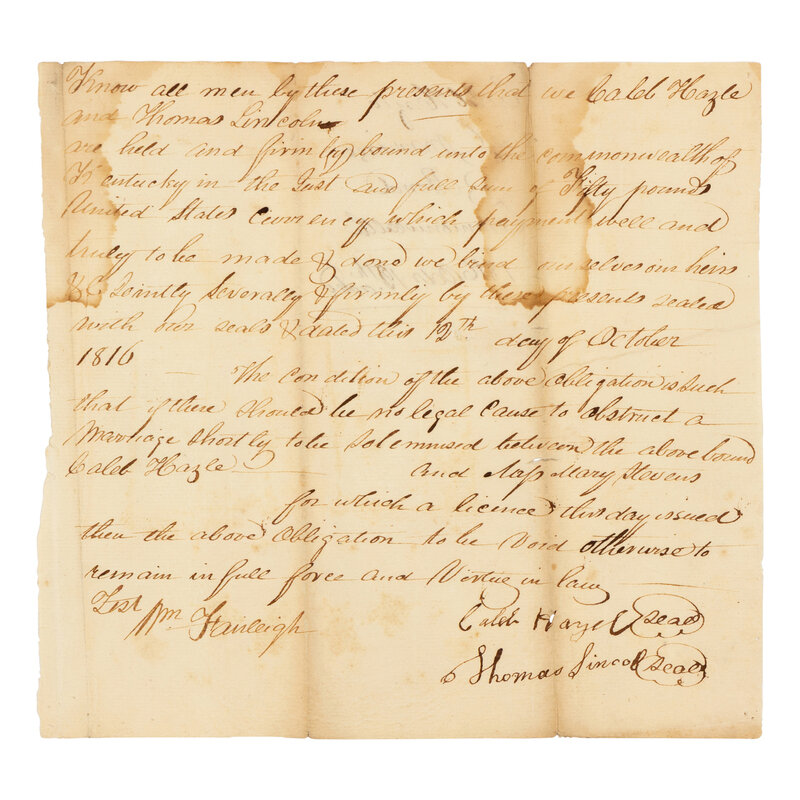 Know all men by these presents that we Caleb Hazle
and Thomas Lincoln
are held and firmly bound unto the commonwealth of
Kentucky in the Just and full sum of Fifty pounds
United States Currency which payment well and
truly to be made & done we bind ourselves our heirs
&C Jointly Severally & firmly by these presents sealed
with our seals & dated this 12th day of October
1816
The condition of the above obligation is such
that if there should be no legal cause to obstruct a
Marriage shortly to be solemnised between the above bound
Caleb Hazle and Miss Mary Stevens
for which a licence this day issued
then the above obligation to be Void otherwise to
remain in full force and Virtue in law
Test Wm Fairleigh
Caleb Hazel Seal
Thomas Lincoln Seal